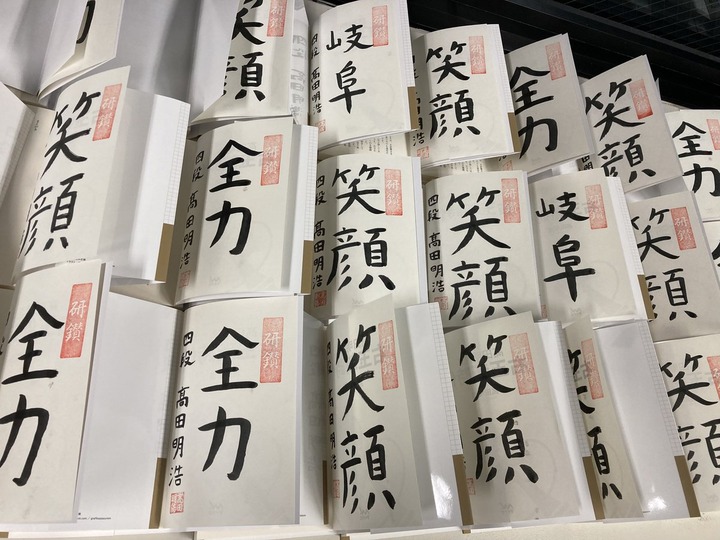 研鑽
笑顔
研鑽
岐阜
四段 髙田明浩
研鑽
笑顔
研鑽
全力
研鑽
笑顔
研鑽
全力
研鑽
笑顔
研鑽
全力
四段 髙田明浩
研鑽
笑顔
四段 髙田明浩
研鑽
笑顔
四段 髙田明浩
研鑽
岐阜
研鑽
笑顔
研鑽
全力
研鑽
全力
四段 髙田明浩
研鑽
笑顔
四段 髙田明浩
研鑽
笑顔
研鑽
笑顔